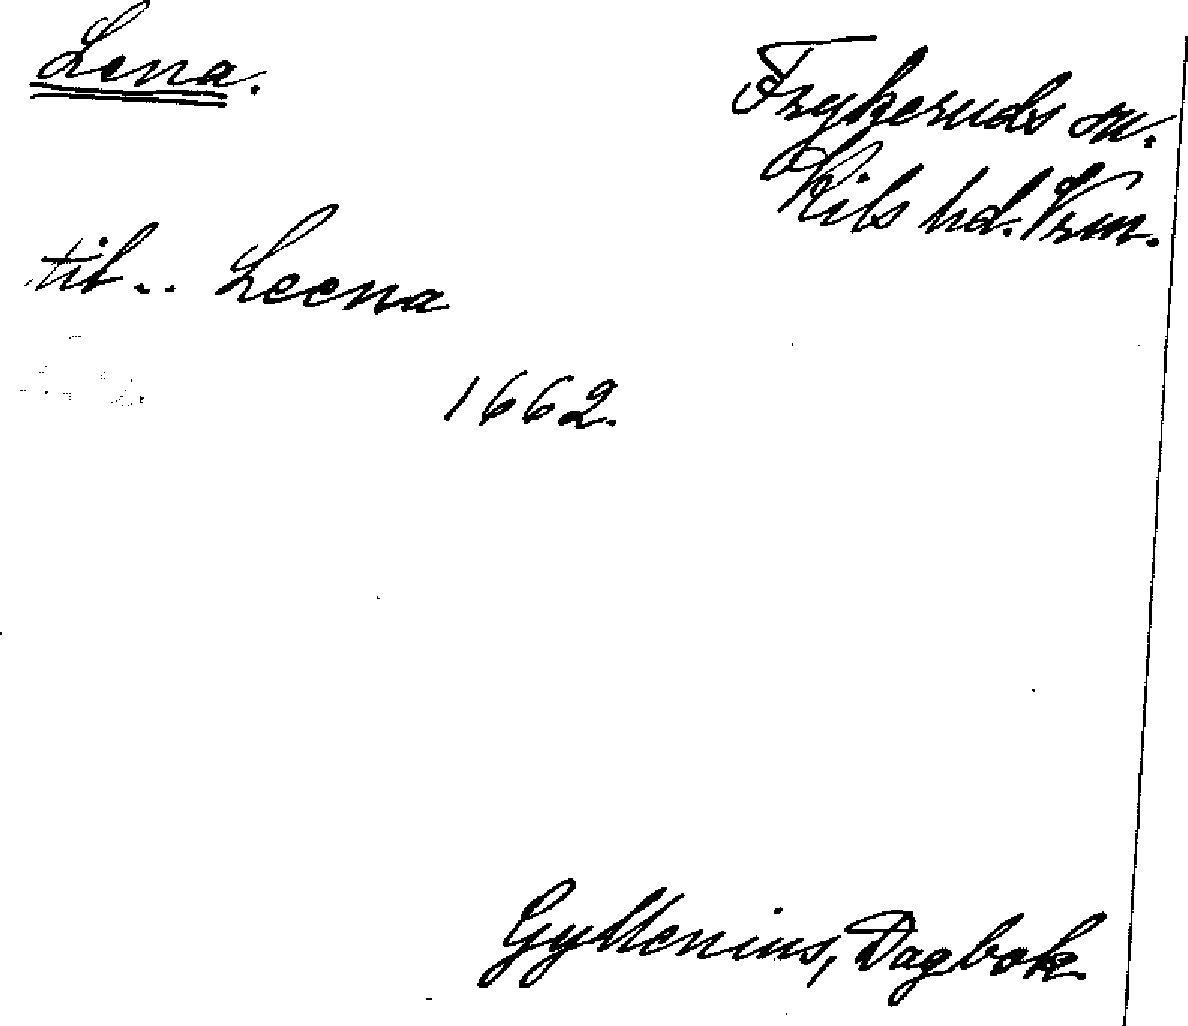 Lena.
Frykeruds sn.
Kils hd. Vrm.
til.. Leena
1662.
Gyllenius, Dagbok